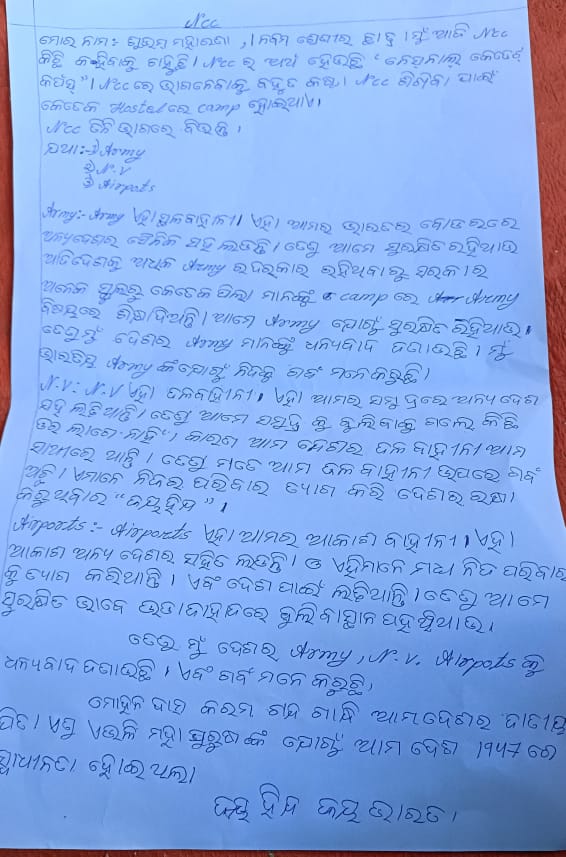 Ncc
ମୋର ନାମ: ଶୁଭମ ମହାରଣା, ।ନବମ ଶ୍ରେଣୀର ଛାତ୍ର । ମୁଁ ଆଜି Ncc
କିଛି କହିବାକୁ ଚାହୁଛି । Ncc ର ଅର୍ଥ ହେଉଛି "ନେସନାଲ୍ କେଡେଟ୍
କର୍ପସ୍" । Ncc ରେ ଭାଗନେବାକୁ ବହୁତ କଷ୍ଟ । Ncc ଶିଖିବା ପାଇଁ
କେତେକ Hostel ରେ camp ହୋଇଥାଏ ।
Ncc ତିନି ଭାଗରେ ବିଭକ୍ତ ।
ଯଥା:- ① Army
② N.V
③ Airpots
Army:- Army ଏହା ସ୍ଥଳବାହୀନୀ । ଏହା ଆମର ଭାରତର ବୋଡରରେ
ଅନ୍ୟଦେଶର ସୈନିକ ସହ ଲଢନ୍ତି । ତେଣୁ ଆମେ ସୁରକ୍ଷିତ ରହିଥାଉ
ଆମଦେଶକୁ ଅଧିକ Army ର ଦରକାର ରହିଥିବାରୁ ସରକାର
ଅନେକ ସ୍କୁଲରୁ କେତେକ ପିଲା ମାନଙ୍କୁ camp ରେ Army
ବିଷୟରେ ଶିକ୍ଷା ଦିଅନ୍ତି । ଆମେ Army ଯୋଗୁଁ ସୁରକ୍ଷିତ ରହିଥାଉ ।
ତେଣୁ ମୁଁ ଦେଶର Army ମାନଙ୍କୁ ଧନ୍ୟବାଦ ଜଣାଉଛି । ମୁଁ
ଭାରତୀୟ Army ଙ୍କ ଯୋଗୁଁ ନିଜକୁ ଗର୍ବ ମନେ କରୁଛି ।
N.V: N.V ଏହା ଜଳବାହୀନୀ । ଏହା ଆମର ସମୁଦ୍ରରେ ଅନ୍ୟ ଦେଶ
ସହ ଲଢିଥାନ୍ତି । ତେଣୁ ଆମେ ସମୁଦ୍ର କୁ ବୁଲିବାକୁ ଗଲେ କିଛି
ଡର ଲାଗେ ନାହିଁ । କାରଣ ଆମ ଦେଶର ଜଳ ବାହୀନୀ ଆମ
ସାଥୀରେ ଅଛନ୍ତି । ତେଣୁ ମତେ ଆମ ଜଳ ବାହୀନୀ ଉପରେ ଗର୍ବ
ଅଛି । ଏମାନେ ନିଜର ପରିବାର ତ୍ୟାଗ କରି ଦେଶର ରକ୍ଷା
କରୁଥିବାର "ଜୟହିନ୍ଦ" ।
Airpots:- Airpots ଏହା ଆମର ଆକାଶ ବାହୀନୀ । ଏହା
ଆକାଶ ଅନ୍ୟ ଦେଶର ସହିତ ଲଢନ୍ତି । ଓ ଏହିମାନେ ମଧ୍ୟ ନିଜ ପରିବାର
କୁ ତ୍ୟାଗ କରିଥାନ୍ତି । ଏବଂ ଦେଶ ପାଇଁ ଲଢିଥାନ୍ତି । ତେଣୁ ଆମେ
ସୁରକ୍ଷିତ ଭାବେ ଉଡାଜାହାଜରେ ବୁଲିବା ସ୍ଥାନ ପହଞ୍ଚିଥାଉ ।
ତେଣୁ ମୁଁ ଦେଶର Army, N.V. Airpots କୁ
ଧନ୍ୟବାଦ ଜଣାଉଛି, ଏବଂ ଗର୍ବ ମନେ କରୁଛି,
ମୋହନ ଦାସ କରମ ଚାନ୍ଦ ଗାନ୍ଧି ଆମ ଦେଶର ଜାତୀୟ
ପିତା ଏଣୁ ଏଭଳି ମହାପୁରୁଷଙ୍କ ଯୋଗୁଁ ଆମ ଦେଶ 1947 ରେ
ସ୍ୱାଧୀନତା ହୋଇଥିଲା
ଜୟ ହିନ୍ଦ ଜୟ ଭାରତ ।